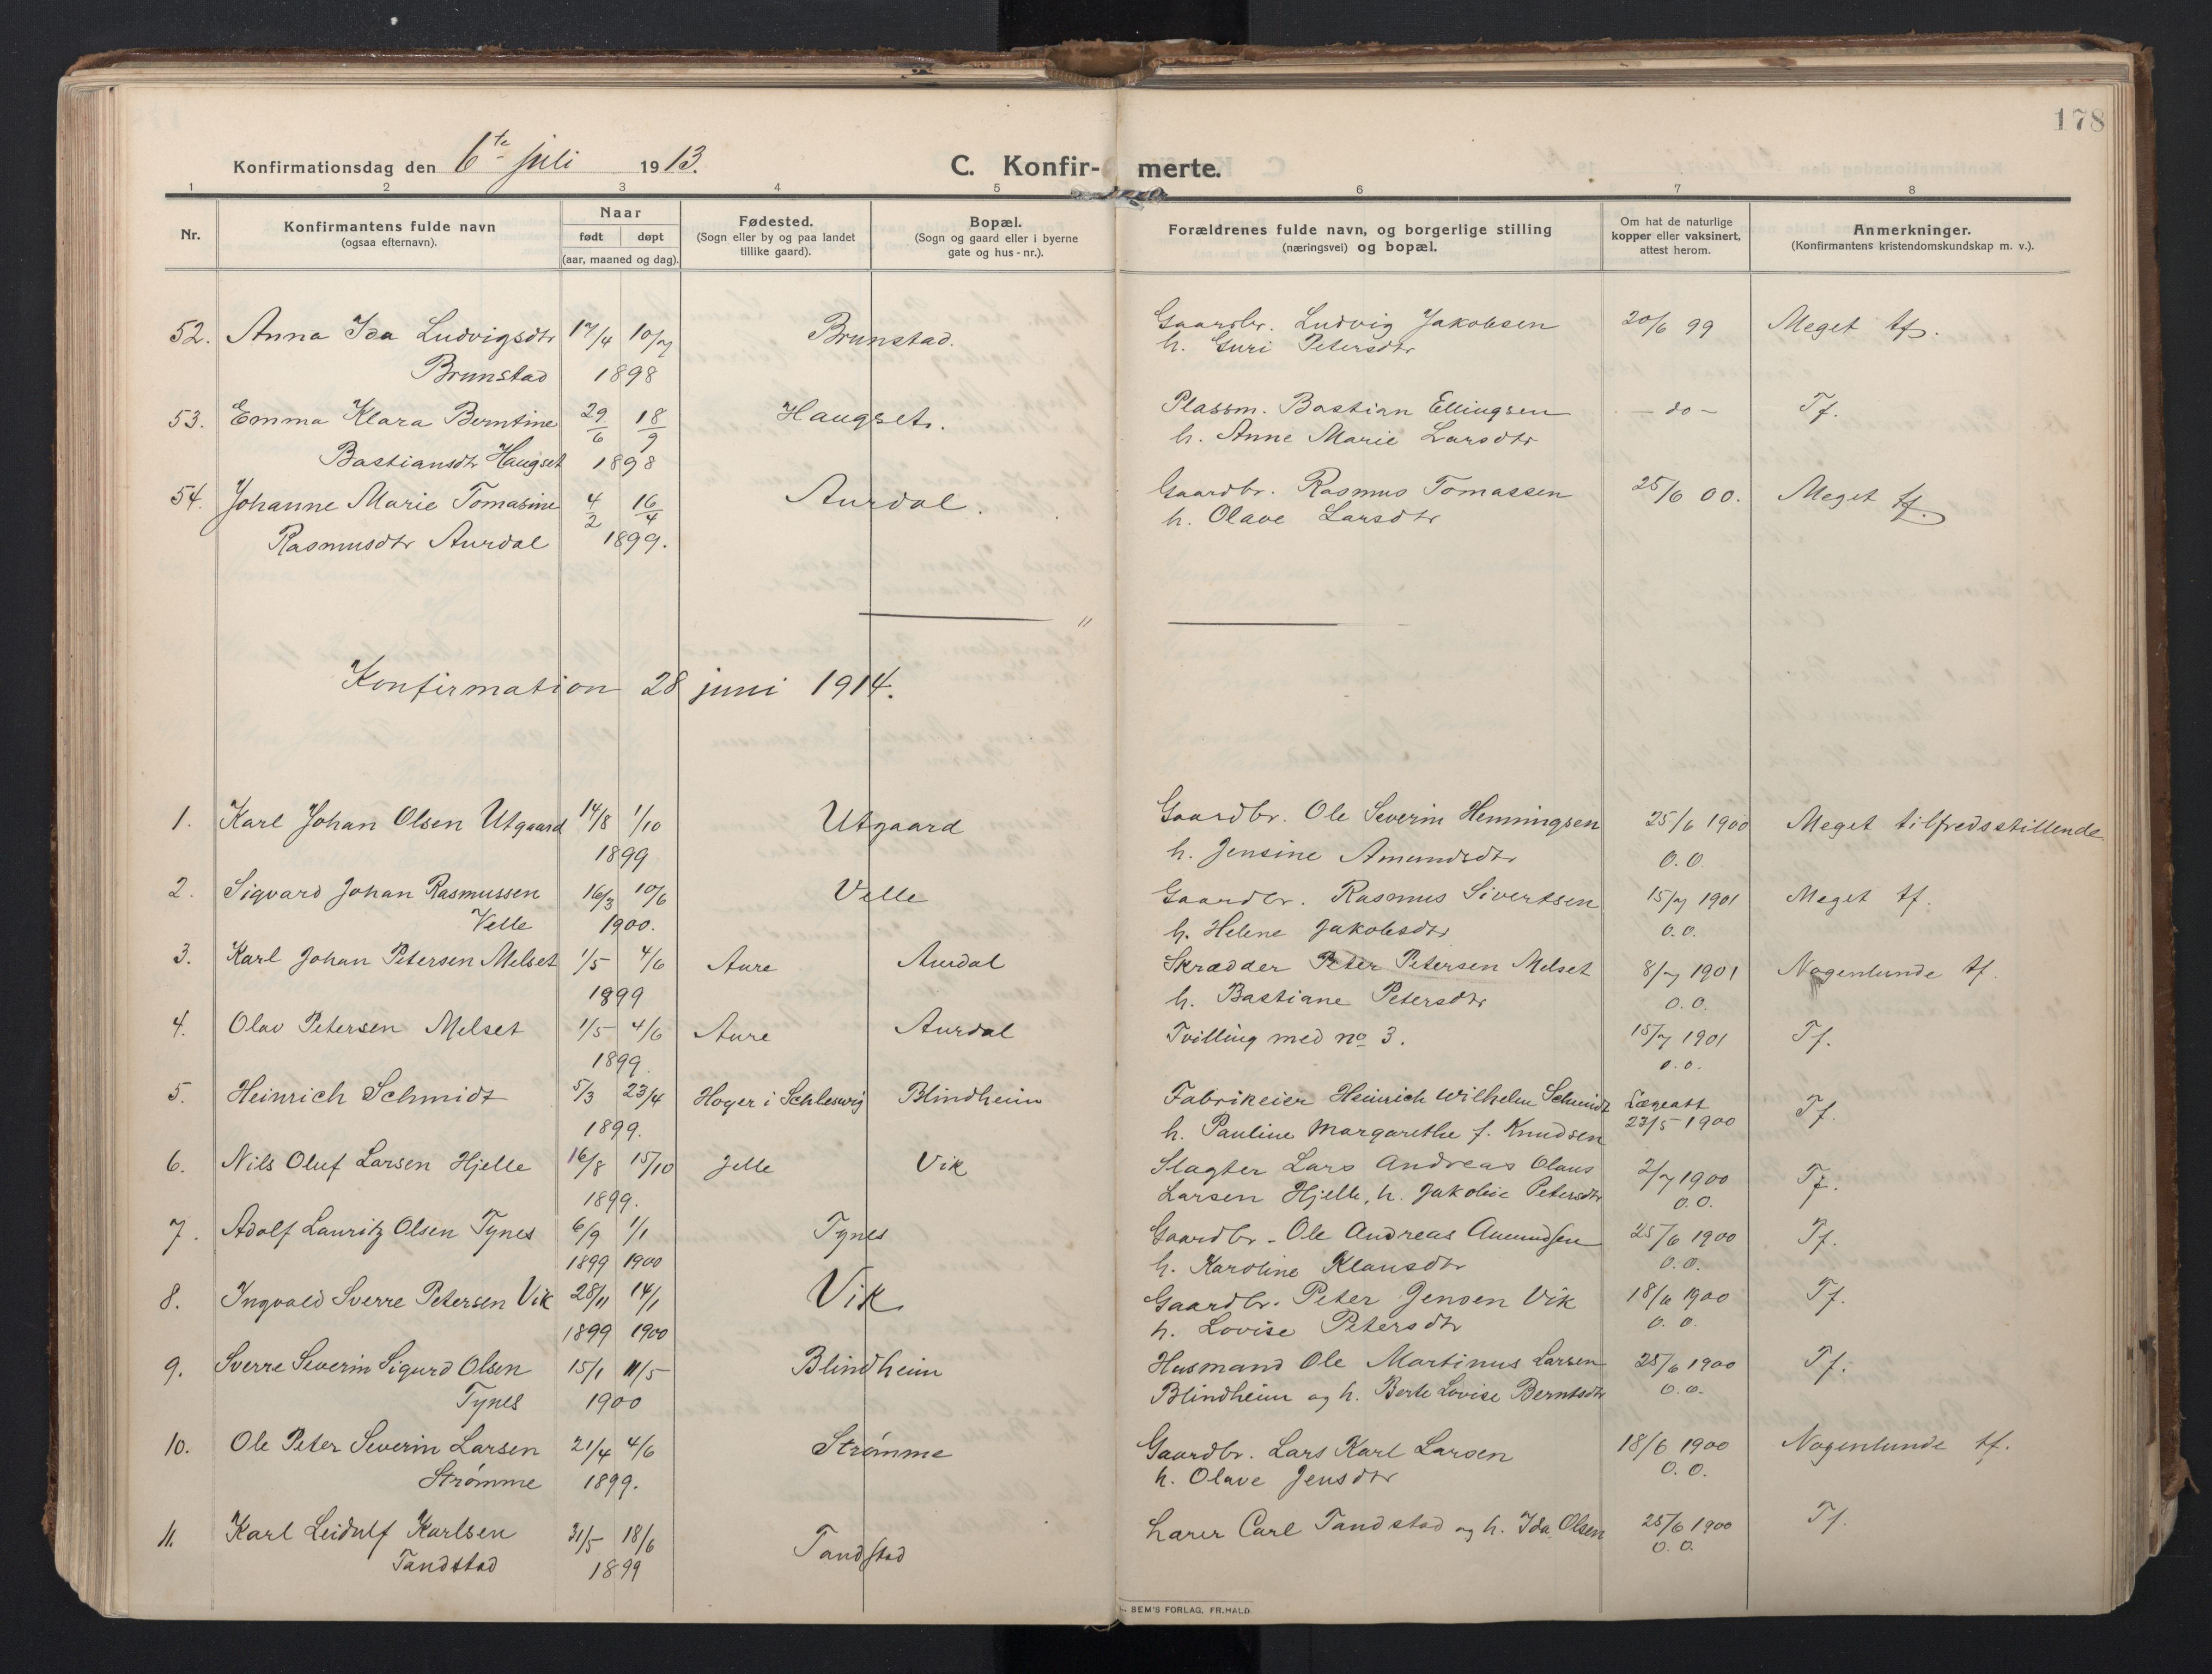 178
Konfirmationsdag den 6te juli 1913.
C. Konfir- merte.
1 2 3 4 5 6 7 8
Nr.
Konfirmantens fulde navn
(ogsaa efternavn).
Naar
født døpt
(aar, maaned og dag).
Fødested.
(Sogn eller by og paa landet
tillike gaard).
Bopæl.
(Sogn og gaard eller i byerne
gate og hus-nr.).
Forældrenes fulde navn, og borgerlige stilling
(næringsvei) og bopæl.
Om hat de naturlige
kopper eller vaksinert,
attest herom.
Anmerkninger.
(Konfirmantens kristendomskundskap m. v.).
52. Anna Ida Ludvigsdtr 17/4 10/7 Brunstad. Gaardbr. Ludvig Jakobsen 20/6 99 Meget tf.
Brunstad 1898 h. Guri Petersdtr
53. Emma Klara Berntine 29/6 18/9 Haugset. Plassm. Bastian Ellingsen - do - Tf.
Bastiansdtr Haugset 1898 h. Anne Marie Larsdtr
54. Johanne Marie Tomasine 4/2 16/4 Aurdal. Gaardbr. Rasmus Tomassen 25/6 00. Meget tf.
Rasmusdtr Aurdal 1899. h. Olave Larsdtr
Konfirmation 28 juni 1914.
1. Karl Johan Olsen Utgaard 14/8 1/10 Utgaard Gaardbr. Ole Severin Hemmingsen 25/6 1900 Meget tilfredsstillende
1899 h. Jensine Amundsdtr o.o.
2. Sigvard Johan Rasmussen 16/3 10/6 Velle Gaardbr. Rasmus Sivertsen 15/7 1901 Meget tf.
Velle 1900. h. Helene Jakobsdtr o.o.
3. Karl Johan Petersen Melset 1/5 4/6 Aure Aurdal Skrædder Peter Petersen Melset 8/7 1901 Nogenlunde tf.
1899 h. Bastiane Petersdtr o.o.
4. Olav Petersen Melset 1/5 4/6 Aure Aurdal Tvilling med no 3. 15/7 1901 Tf.
1899. o.o.
5. Heinrich Schmidt 5/3 23/4 Hoger i Schleswig Blindheim Fabrikeier Heinrich Wilhelm Schmidt Lægeatt Tf.
1899. h. Pauline Margarethe f. Knudsen 23/5 1900
6. Nils Oluf Larsen Hjelle 16/8 15/10 Jelle Vik Slagter Lars Andreas Olaus 2/7 1900 Tf.
1899. Larsen Hjelle, h. Jakobie Petersdtr o.o.
7. Adolf Lauritz Olsen Tynes 6/9 1/1 Tynes Gaardbr. Ole Andreas Amundsen 25/6 1900 Tf.
1899 1900 h. Karoline Klausdtr o.o.
8. Ingvald Sverre Petersen Vik 28/11 14/1 Vik Gaardbr. Peter Jensen Vik 18/6 1900 Tf.
1899 1900 h. Lovise Petersdtr o.o.
9. Sverre Severin Sigurd Olsen 15/1 11/5 Blindheim Husmand Ole Martinus Larsen 25/6 1900 Tf.
Tynes 1900 Blindheim og h. Berte Lovise Berntsdtr o.o.
10. Ole Peter Severin Larsen 21/4 4/6 Strømme Gaardbr. Lars Karl Larsen 18/6 1900 Nogenlunde tf.
Strømme 1899. h. Olave Jensdtr o.o.
11. Karl Leidulf Karlsen 31/5 18/6 Tandstad Lærer Carl Tandstad og h. Ida Olsen 25/6 1900 Tf.
Tandstad 1899 o.o.
SEM'S FORLAG, FR.HALD